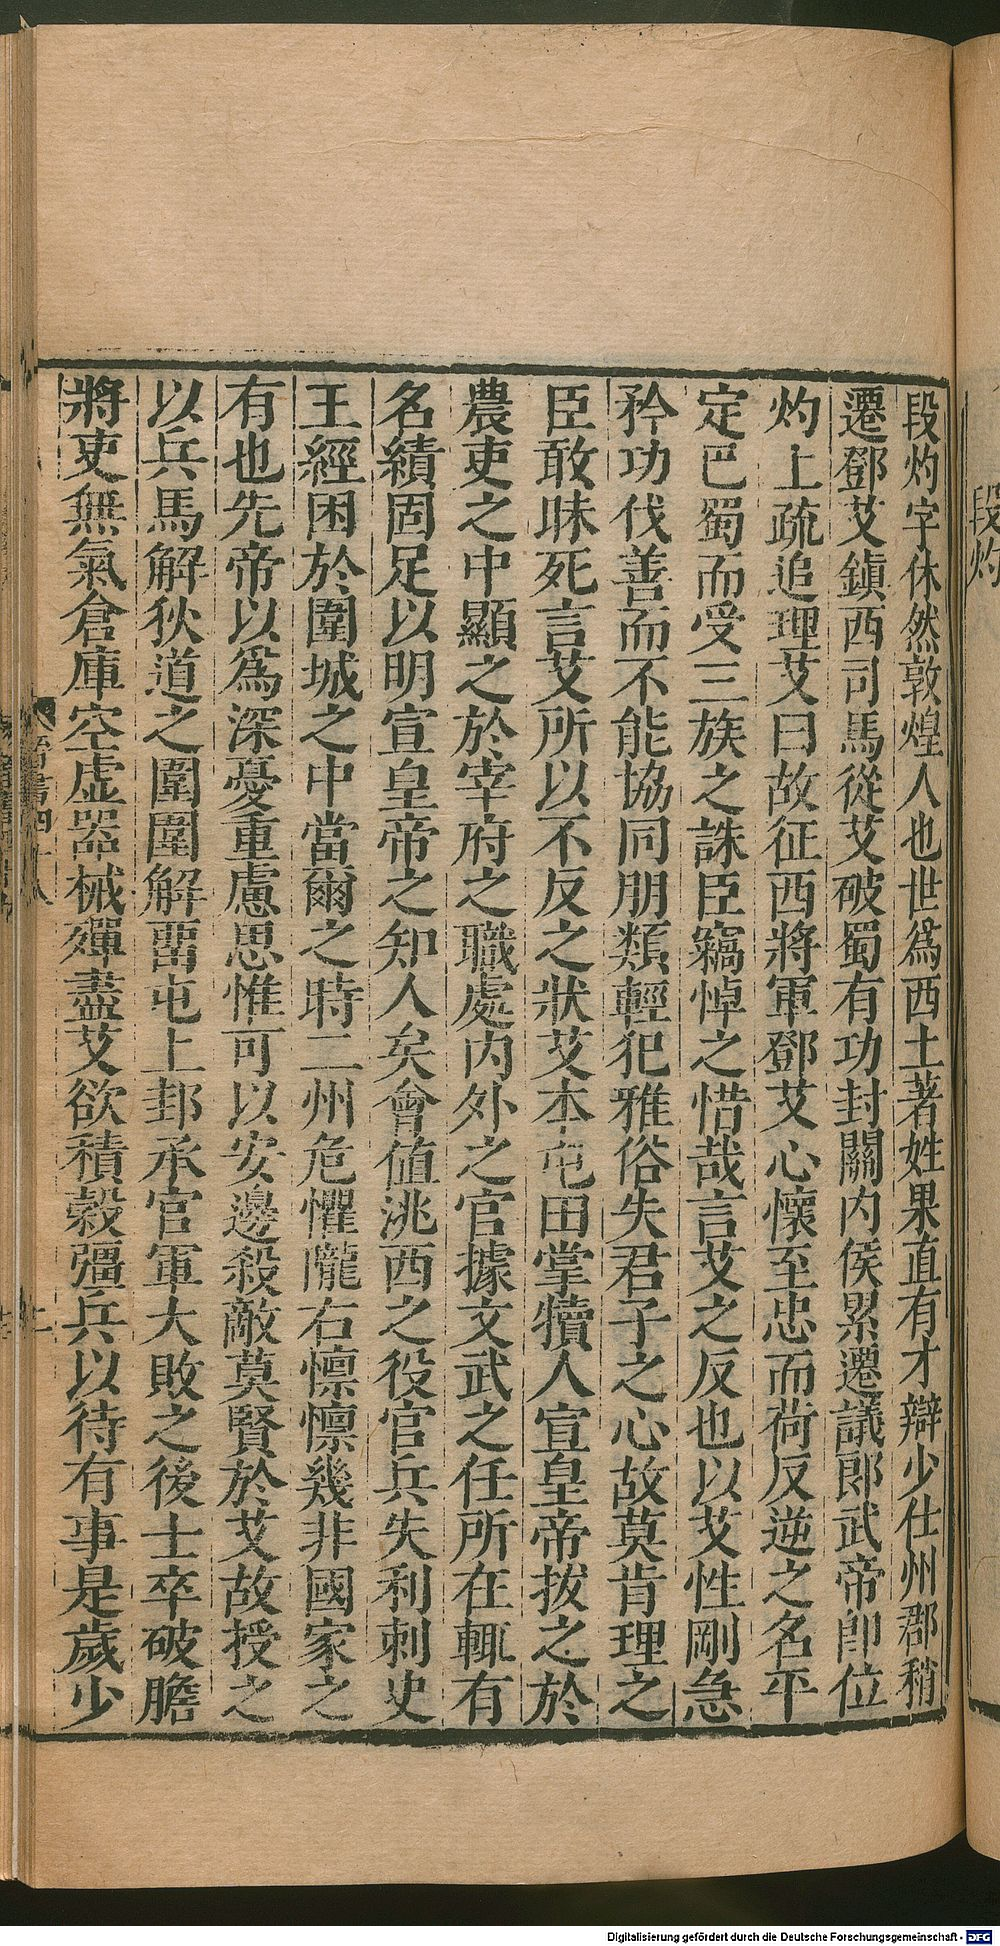 段灼
段灼字休然敦煌人也世爲西土著姓果直有才辯少仕州郡稍
遷鄧艾鎭西司馬從艾破蜀有功封關內侯累遷議郎武帝卽位
灼上疏追理艾曰故征西將軍鄧艾心懷至忠而荷反逆之名平
定巴蜀而受三族之誅臣竊悼之惜哉言艾之反也以艾性剛急
矜功伐善而不能協同朋類輕犯雅俗失君子之心故莫肯理之
臣敢昧死言艾所以不反之狀艾本屯田掌犢人宣皇帝拔之於
農吏之中顯之於宰府之職處內外之官據文武之任所在輒有
名績固足以明宣皇帝之知人矣會値洮西之役官兵失利刺史
王經困於圍城之中當爾之時二州危懼隴右懍懍幾非國家之
有也先帝以爲深憂重慮思惟可以安邊殺敵莫賢於艾故授之
以兵馬解狄道之圍圍解畱屯上邽承官軍大敗之後士卒破膽
將吏無氣倉庫空虛器械殫盡艾欲積穀彊兵以待有事是歲少
晉書四十八
Digitalisierung gefördert durch die Deutsche Forschungsgemeinschaft - DFG